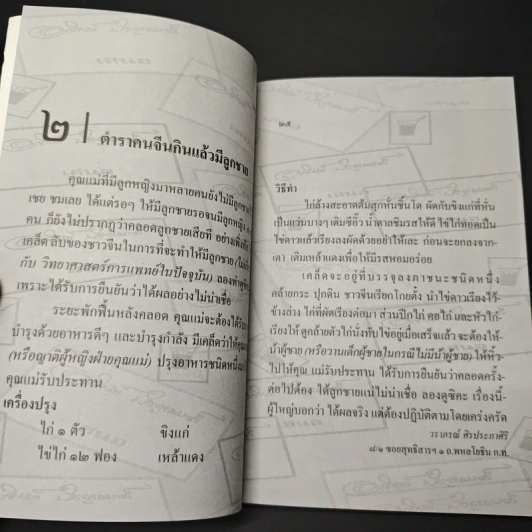 ๒ | ตำราคนจีนกินแล้วมีลูกชาย
คุณแม่ที่มีลูกหญิงมาหลายคนยังไม่มีลูกชาย
เชย ชมเลย ได้แต่รอๆ ให้มีลูกชายรอจนมีลูกหญิง
คน ก็ยังไม่ปรากฏว่าคลอดลูกชายเสียที อย่างเพิ่ง
เคล็ดลับของชาวจีนในการที่จะทำให้มีลูกชาย
กับ วิทยาศาสตร์การแพทย์ในปัจจุบัน) ลองทำดู
เพราะได้รับการยืนยันว่าได้ผลอย่างไม่น่าเชื่อ
ระยะพักฟื้นหลังคลอด คุณแม่จะต้องได้รับ
บำรุงด้วยอาหารดีๆ และบำรุงกำลัง มีเคล็ดว่าให้
(หรือญาติผู้หญิงฝ่ายคุณแม่) ปรุงอาหารชนิดหนึ่ง
คุณแม่รับประทาน
เครื่องปรุง
ไก่ ๑ ตัว ขิงแก่
ไข่ไก่ ๑๒ ฟอง เหล้าแดง
๒๕
วิธีทำ
ไก่ล้างสะอาดต้มสุกหั่นชิ้นโต ผัดกับขิงแก่ที่หั่น
เป็นแว่นบางๆ เติมซีอิ๊ว น้ำตาลชิมรสให้ดี ไข่ไก่ทอดเป็น
ไข่ดาวแล้วเรียงลงผัดด้วยอย่าให้เละ ก่อนจะยกลงจาก-
เตา เติมเหล้าแดงเพื่อให้มีรสหอมอร่อย
เคล็ดจะอยู่ที่บรรจุลงภาชนะชนิดหนึ่ง
คล้ายกระ ปุกดิน ชาวจีนเรียกโกยตั๋ง นำไข่ดาวเรียงไว้-
ข้างล่าง ไก่ที่ผัดเรียงต่อมา ส่วนปีกไก่ คอไก่ และหัวไก่-
เรียงให้ ดูคล้ายตัวไก่นั่งทับไข่อยู่เมื่อเสร็จแล้ว จะต้องให้-
น้าผู้ชาย (หรือวานเด็กผู้ชายในกรณีไม่มีน้าผู้ชาย) ให้หิ้ว-
ไปให้คุณ แม่รับประทาน ได้รับการยืนยันว่าคลอดครั้ง-
ต่อไปต้อง ได้ลูกชายแน่ไม่น่าเชื่อ ลองดูซิคะ เรื่องนี้-
ผู้ใหญ่บอกว่า ได้ผลจริง แต่ต้องปฏิบัติตามโดยเคร่งครัด
วราภรณ์ ศิรประภาศิริ
๘/๑ ซอยสุทธิสารฯ ๑ ถ.พหลโยธิน ก.ท.